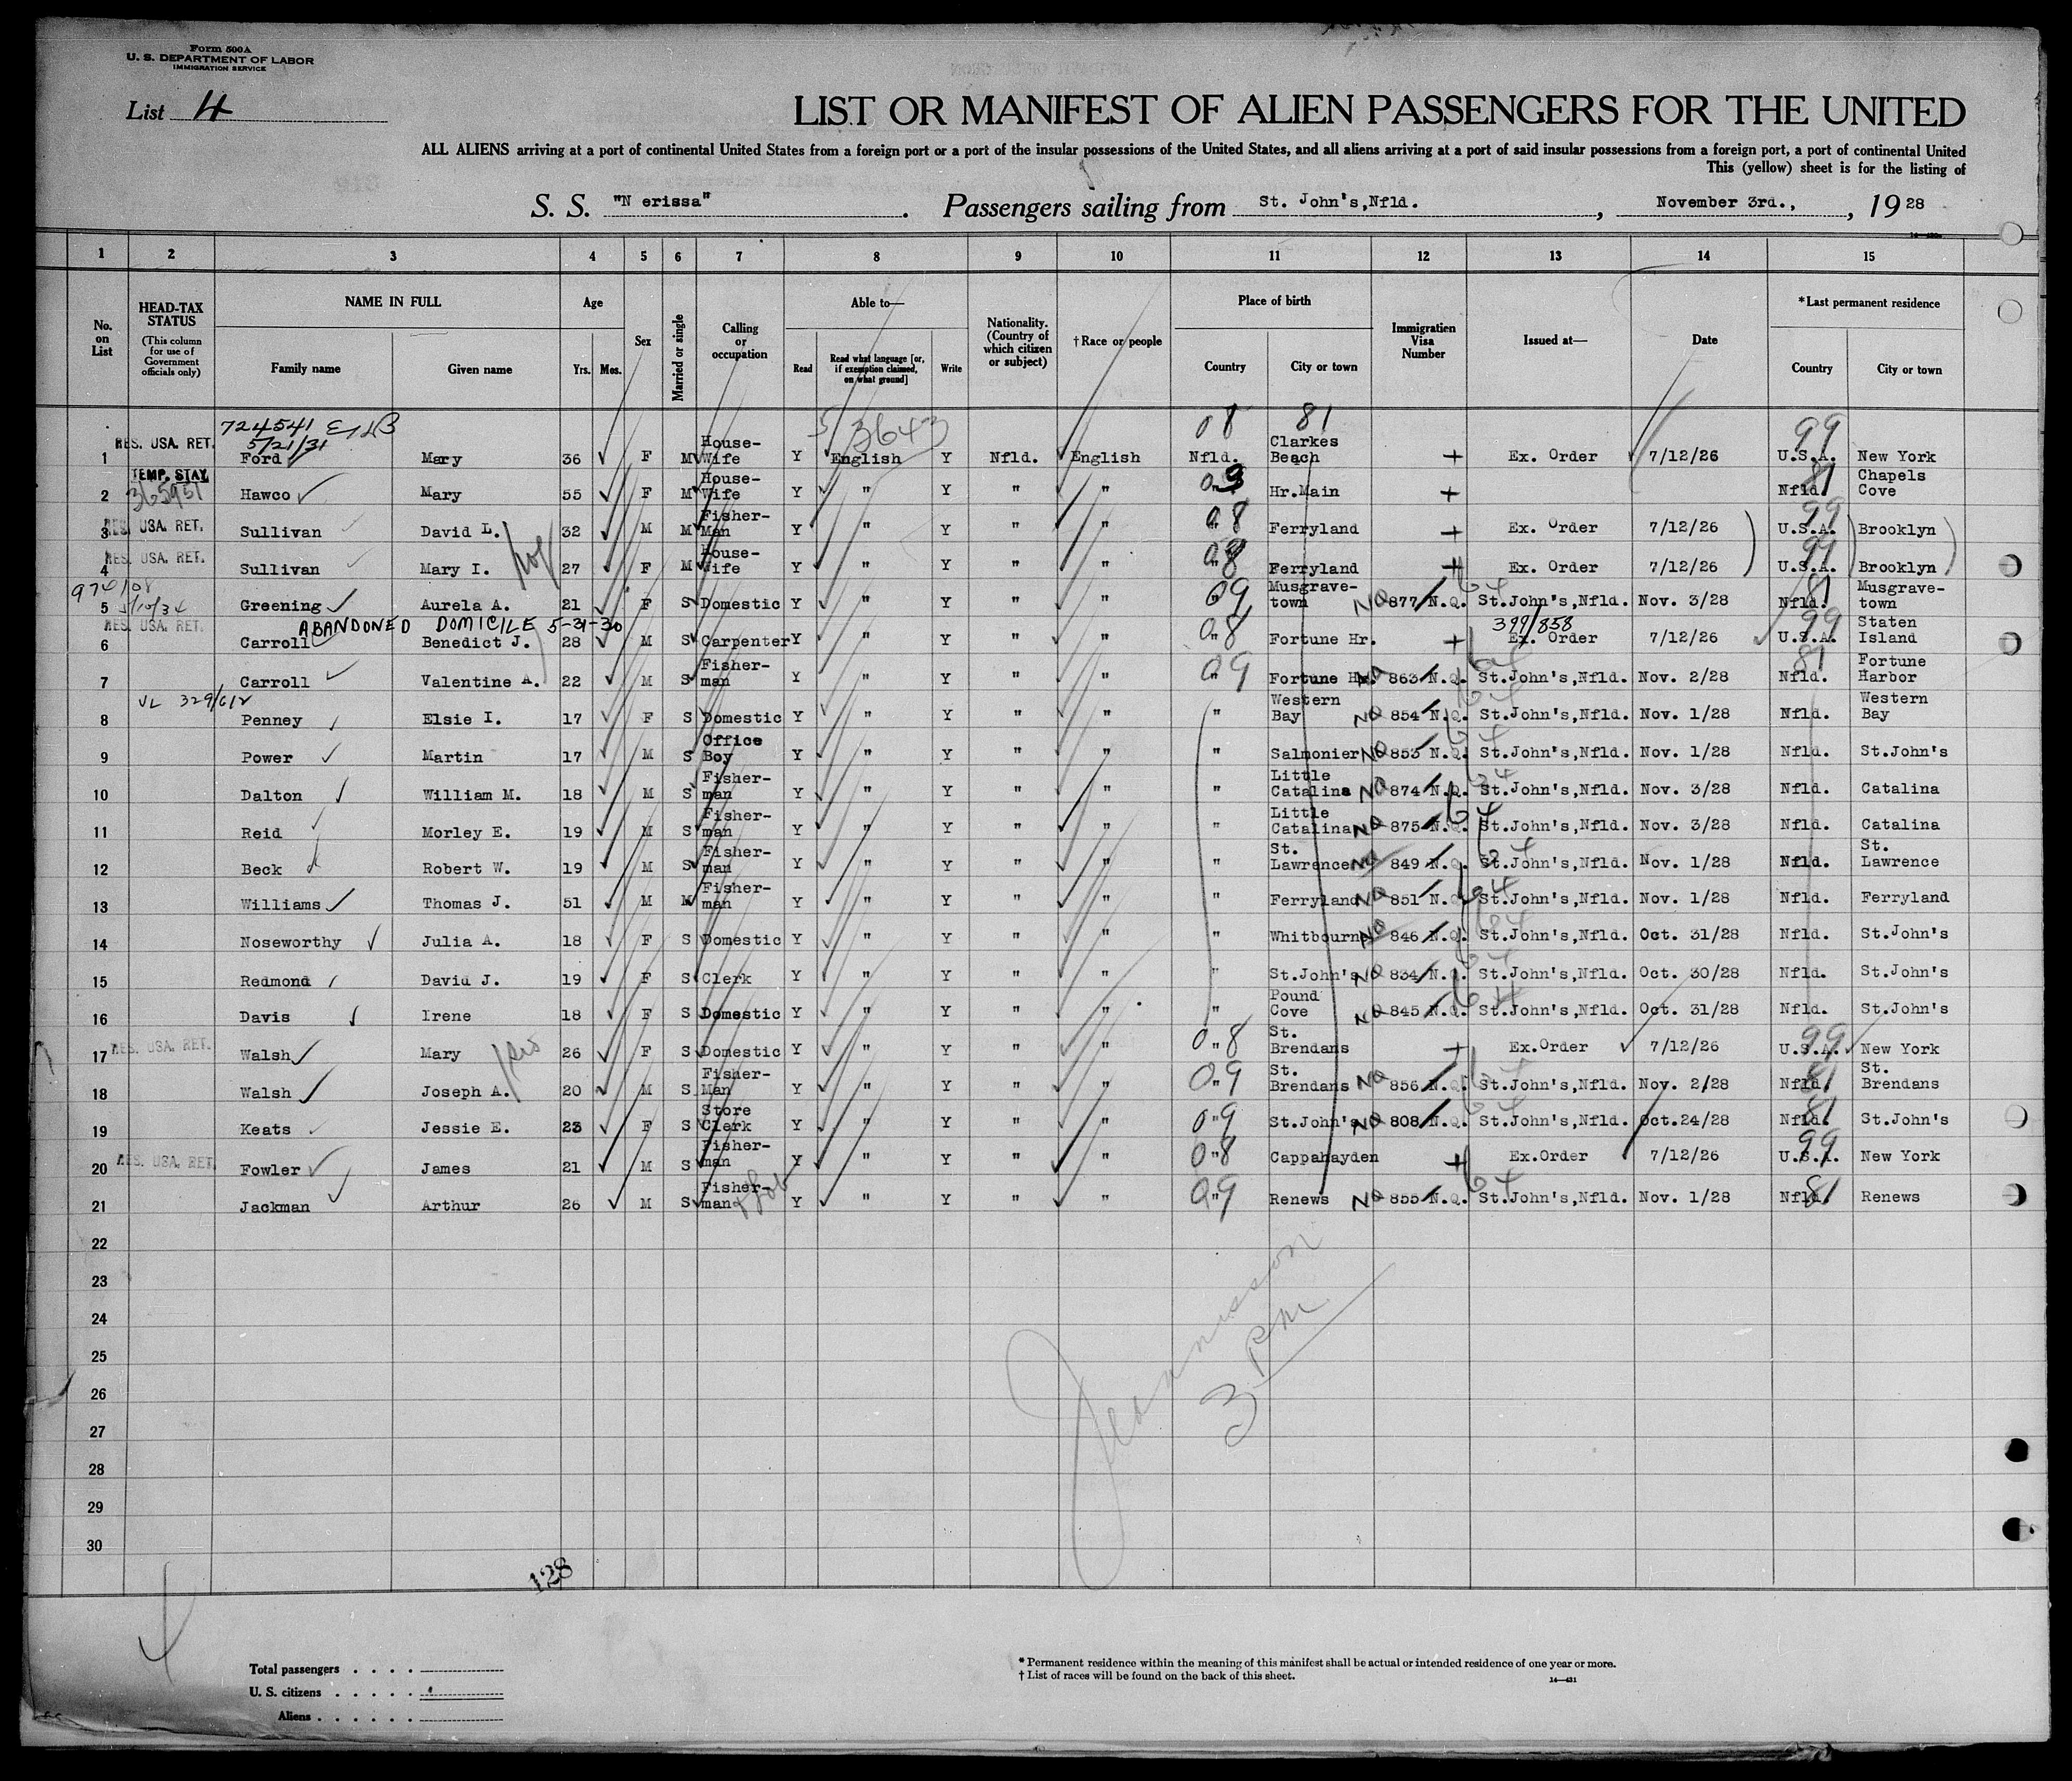 Form 500A
U. S. DEPARTMENT OF LABOR
IMMIGRATION SERVICE
List 4
LIST OR MANIFEST OF ALIEN PASSENGERS FOR THE UNITED
ALL ALIENS arriving at a port of continental United States from a foreign port or a port of the insular possessions of the United States, and all aliens arriving at a port of said insular possessions from a foreign port, a port of continental United
This (yellow) sheet is for the listing of
S. S. "N erissa". Passengers sailing from St. John's,Nfld., November 3rd., , 19 28
1 2 3 4 5 6 7 8 9 10 11 12 13 14 15
No. on List
HEAD-TAX STATUS
(This column for use of Government officials only)
NAME IN FULL
Family name Given name
Age
Yrs. Mos.
Sex
Married or single
Calling or occupation
Able to—
Read
Read what language [or, if exemption claimed, on what ground]
Write
Nationality. (Country of which citizen or subject)
†Race or people
Place of birth
Country City or town
Immigration Visa Number
Issued at—
Date
*Last permanent residence
Country City or town
724541 5/21/31
3643
08 81 99
1 RES. USA. RET. Ford Mary 36 F M House-Wife Y English Y Nfld. English Nfld. Clarkes Beach + Ex. Order 7/12/26 U.S.A. New York
2 TEMP. STAY 365951 Hawco Mary 55 F M House-Wife Y " Y " " " 09 Hr.Main + Nfld. 81 Chapels Cove
3 RES. USA. RET. Sullivan David L. 32 M M Fisher-Man Y " Y " " " 08 Ferryland + Ex. Order 7/12/26 U.S.A. 99 Brooklyn
4 RES. USA. RET. Sullivan Mary I. 27 F M House-Wife Y " Y " " " 08 Ferryland + Ex. Order 7/12/26 U.S.A. 99 Brooklyn
5 Greening Aurela A. 21 F S Domestic Y " Y " " " 09 Musgrave-town NQ 877 N.Q. 64 St.John's,Nfld. Nov. 3/28 Nfld. 81 Musgrave-town
ABANDONED DOMICILE 5-31-30 399/858
6 RES. USA. RET. Carroll Benedict J. 28 M S Carpenter Y " Y " " " 08 Fortune Hr. + Ex. Order 7/12/26 U.S.A. 99 Staten Island
7 Carroll Valentine A. 22 M S Fisher-man Y " Y " " " 09 Fortune Hr. NQ 863 N.Q. 64 St.John's,Nfld. Nov. 2/28 Nfld. 81 Fortune Harbor
VL 329/612
8 Penney Elsie I. 17 F S Domestic Y " Y " " " Western Bay NQ 854 N.Q. 64 St.John's,Nfld. Nov. 1/28 Nfld. Western Bay
9 Power Martin 17 M S Office Boy Y " Y " " " Salmonier NQ 853 N.Q. 64 St.John's,Nfld. Nov. 1/28 Nfld. St.John's
10 Dalton William M. 18 M S Fisher-man Y " Y " " " Little Catalina NQ 874 N.Q. 64 St.John's,Nfld. Nov. 3/28 Nfld. Catalina
11 Reid Morley E. 19 M S Fisher-man Y " Y " " " Little Catalina NQ 875 N.Q. 64 St.John's,Nfld. Nov. 3/28 Nfld. Catalina
12 Beck Robert W. 19 M S Fisher-man Y " Y " " " St. Lawrence NQ 849 N.Q. 64 St.John's,Nfld. Nov. 1/28 Nfld. St. Lawrence
13 Williams Thomas J. 51 M M Fisher-man Y " Y " " " Ferryland NQ 851 N.Q. 64 St.John's,Nfld. Nov. 1/28 Nfld. Ferryland
14 Noseworthy Julia A. 18 F S Domestic Y " Y " " " Whitbourne NQ 846 N.Q. 64 St.John's,Nfld. Oct. 31/28 Nfld. St.John's
15 Redmond David J. 19 F S Clerk Y " Y " " " St.John's NQ 834 N.Q. 64 St.John's,Nfld. Oct. 30/28 Nfld. St.John's
16 Davis Irene 18 F S Domestic Y " Y " " " Pound Cove NQ 845 N.Q. 64 St.John's,Nfld. Oct. 31/28 Nfld. St.John's
17 RES. USA. RET. Walsh Mary 26 F S Domestic Y " Y " " " 08 St. Brendans + Ex.Order 7/12/26 U.S.A. 99 New York
18 Walsh Joseph A. 20 M S Fisher-Man Y " Y " " " 09 St. Brendans NQ 856 N.Q. 64 St.John's,Nfld. Nov. 2/28 Nfld. 81 St. Brendans
19 Keats Jessie E. 23 F S Store Clerk Y " Y " " " 09 St.John's NQ 808 N.Q. 64 St.John's,Nfld. Oct.24/28 Nfld. 81 St.John's
20 RES. USA. RET. Fowler James 21 M S Fisher-man Y " Y " " " 08 Cappahayden + Ex.Order 7/12/26 U.S.A. 99 New York
21 Jackman Arthur 26 M S Fisher-man Y " Y " " " 09 Renews NQ 855 N.Q. 64 St.John's,Nfld. Nov. 1/28 Nfld. 81 Renews
22
23
24
25
26
27
28
29
30
3 PM
128
Total passengers . . . .
U. S. citizens . . . . .
Aliens . . . . . .
* Permanent residence within the meaning of this manifest shall be actual or intended residence of one year or more.
† List of races will be found on the back of this sheet.
14—431